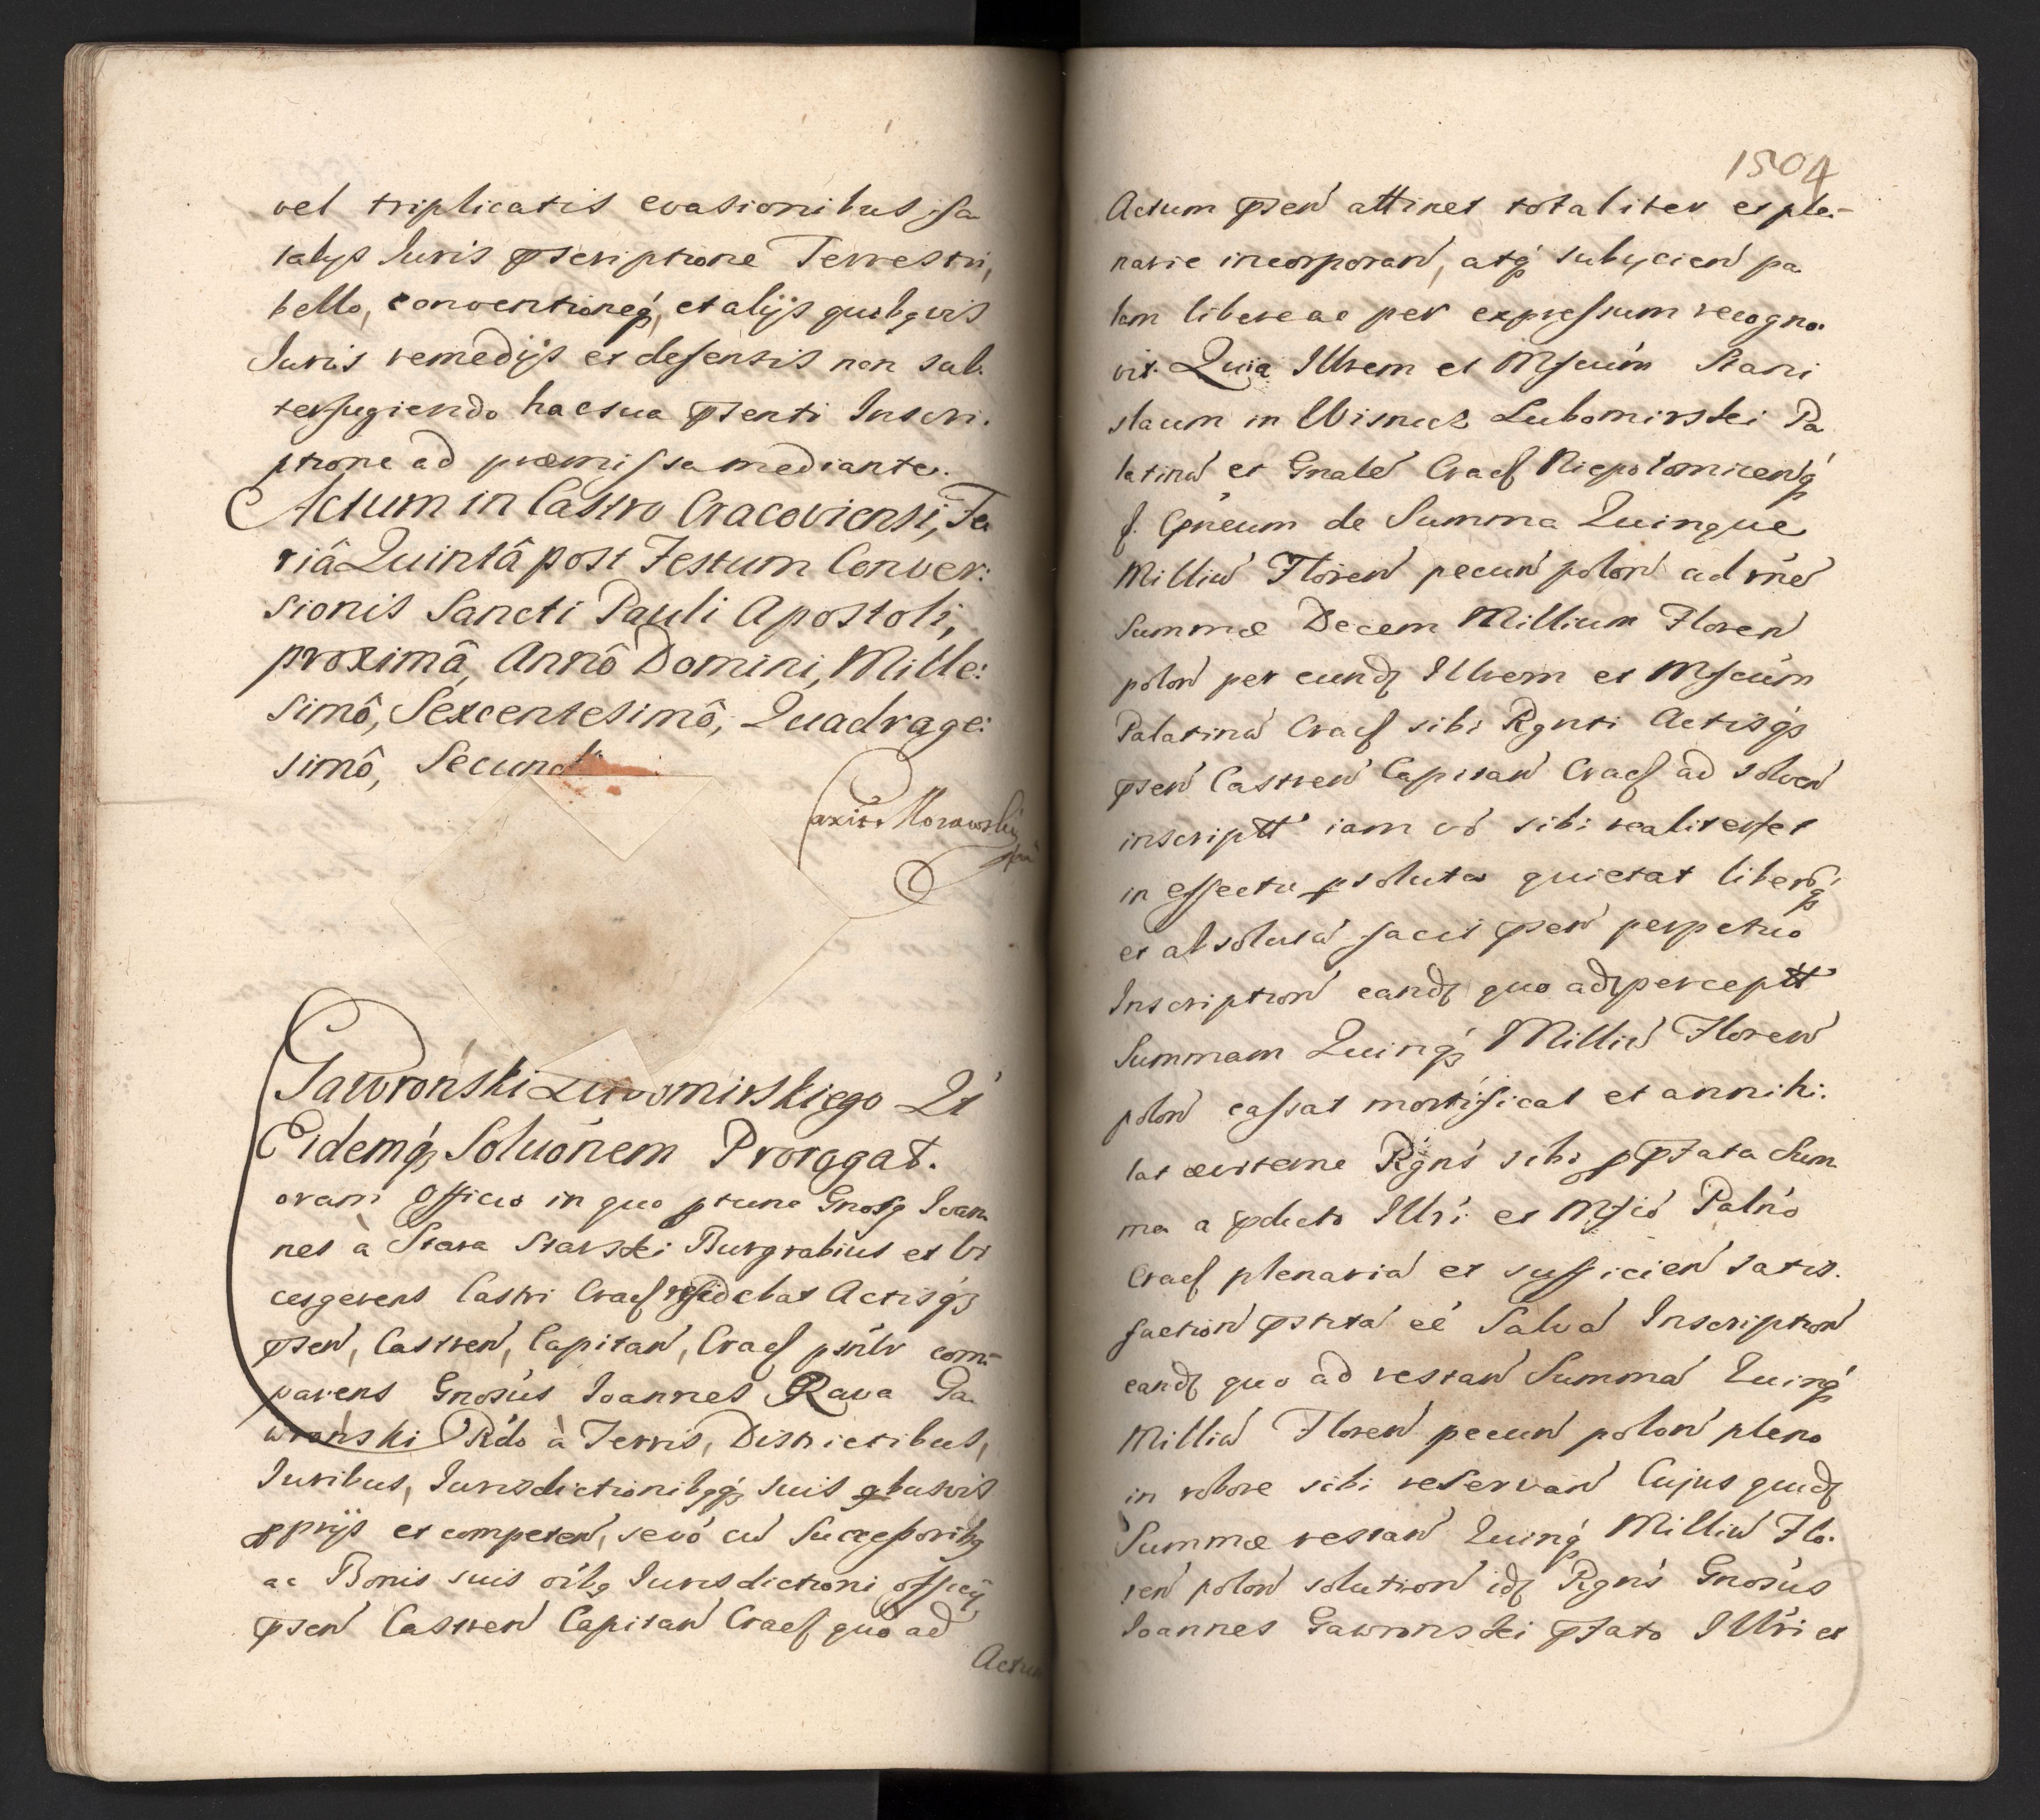 vel triplicatis evasionibus fa
talys Iuris pscriptione Terrestri,
bello, conventioneq, et alijs quibqvis
Iuris remedijs et defensis non sub
terfugiendo hac sua psenti Inscri.
ptione ad præmissa mediante.
Actum in Castro Cracoviensi, Fe
riâ Quintâ post Festum Conver:
sionis Sancti Pauli Apostoli,
proximâ, Annô Domini, Mille:
simô, Sexcentesimô, Quadrage:
simô, Secund
Morawski
Gawroński Lubomirskiego Qt
Eidemq Soluónem Prorogat.
oram Officio in quo ptunc Gnosq Ioan
nes à Stara Starski Burgrabius et Vi
cesgerens Castri Cracf residebat Actisq
psen, Castren, Capitan, Cracf psnlr com-
parens Gnosus Ioannes Rava Ga
wronski Rdo à Terris, Districtibus,
Iuribus, Iurisdictionibqq suis qbusvis
pprijs et competen, sevó cu Successoribq
ac Bonis suis oibq Iurisdictioni officij
psen Castren Capitan Cracf quo ad
Actum
1504
Actum psen attinet totaliter et ple-
narie incorporan, atq subycien pa
lam libere ac per expressum recogno.
vit. Quia Illrem et Mfcum Stani
slaum in Wisnicz Lubomirski Pa
latinu et Gnale Cracf Niepolomicenq
f. Cpneum de Summa Quinque
Milliu Floren pecun polon ad rne
Summæ Decem Millium Floren
polon per eundz Illrem et Mfcum
Palatinu Cracf sibi Rgnti Actisq
psen Castren Capitan Cracf ad solven
inscriptt iam vó sibi realiter et
in effectu psoluta quietat liberq
et absolutu facit psen perpetuo
Inscription eandz quo ad perceptt
Summam Quinq Milliu Floren
polon cassat mortificat et annihi:
lat æviterne Rgns sibi p pfata Sum
ma a pdicto Illri et Mfco Palno
Cracf plenaria et sufficien satis.
faction pstita ee Salva Inscription
eandz quo ad restan Summa Quinq
Milliu Floren pecun polon pleno
in robore sibi reservan Cujus quidz
Summæ restan Quinq Milliu Flo.
ren polon solution idz Rgns Gnosus
Ioannes Gawronski pfato Illri et